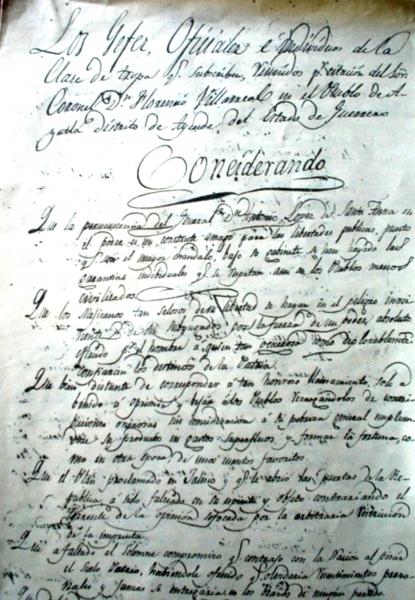 Los Gefes, Oficiales é individuos de la
Clase de tropa q. subscriben, reunidos pr. citacion del Sor.
Coronel Dn. Florencio Villarreal en el Pueblo de A-
yutla distrito de Ayende, del Estado de Guerrero
Considerando
Que la permanencia del General Dn. Antonio Lopez de Santa Anna en
el poder es un constante amago para las libertades publicas, puesto
q. con el mayor escándalo, bajo su gobierno se han hoyado las
garantias individuales q. se respetan aun en los Pueblos menos
civilizados
Que los Mejicanos tan celosos de su libertad se hayan en el peligro inmi-
nente de ser subyugados por la fuerza de un poder absoluto
ejercido pr. el hombre á quien tan generosa como deplorablemente
confiaran los destinos de la Patria
Que bien distante de corresponder á tan honroso llamamiento, solo a
benido á oprimir y bejar á los Pueblos recargandolos de contri-
buciones onerosas sin consideracion á la pobreza general emplean-
dose su producto en gastos superfluos y formar la fortuna, co-
mo en otra epoca de unos cuantos favoritos
Que el Plan proclamado en Jalisco y q. le abrió las puertas de la Re-
publica, a sido falseado en su espiritu y objeto contrariando el
torrente de la opinion sofocada por la arbitraria restriccion
de la imprenta
Que a faltado al solemne compromiso q. contrajo con la Nacion al pisar
el suelo Patrio, habiendole ofrecido q. olvidaria resentimientos perso-
nales y jamas se entregaria en los brazos de ningun partido